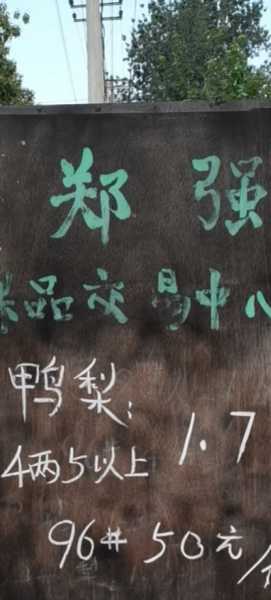 郑强
品交易中心
鸭梨:
1.7
4两5以上
96# 50元/